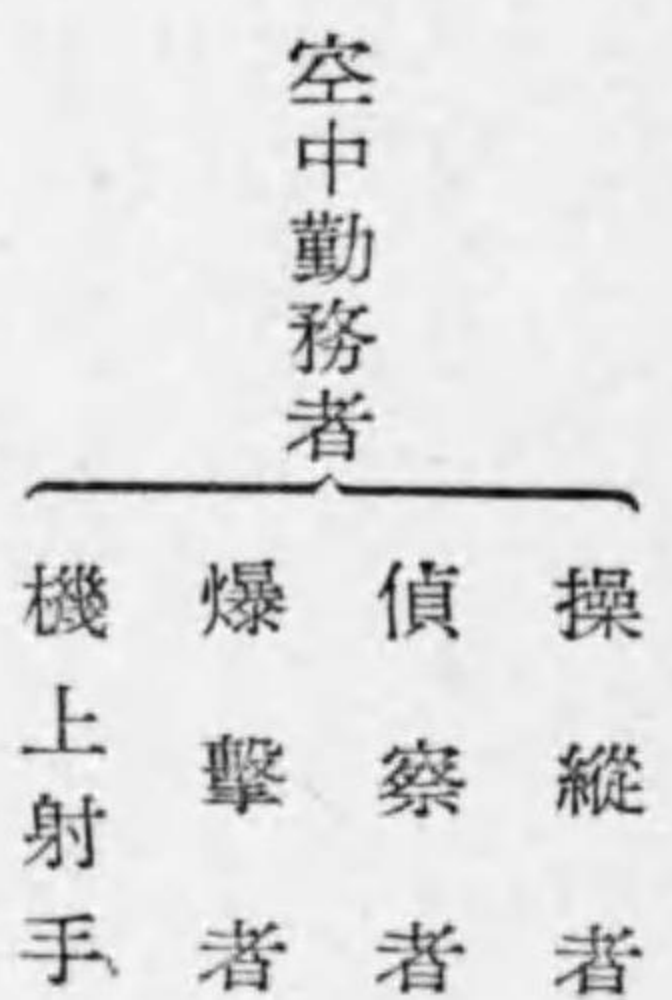 空中勤務者
操縱者
偵察者
爆擊者
機上射手